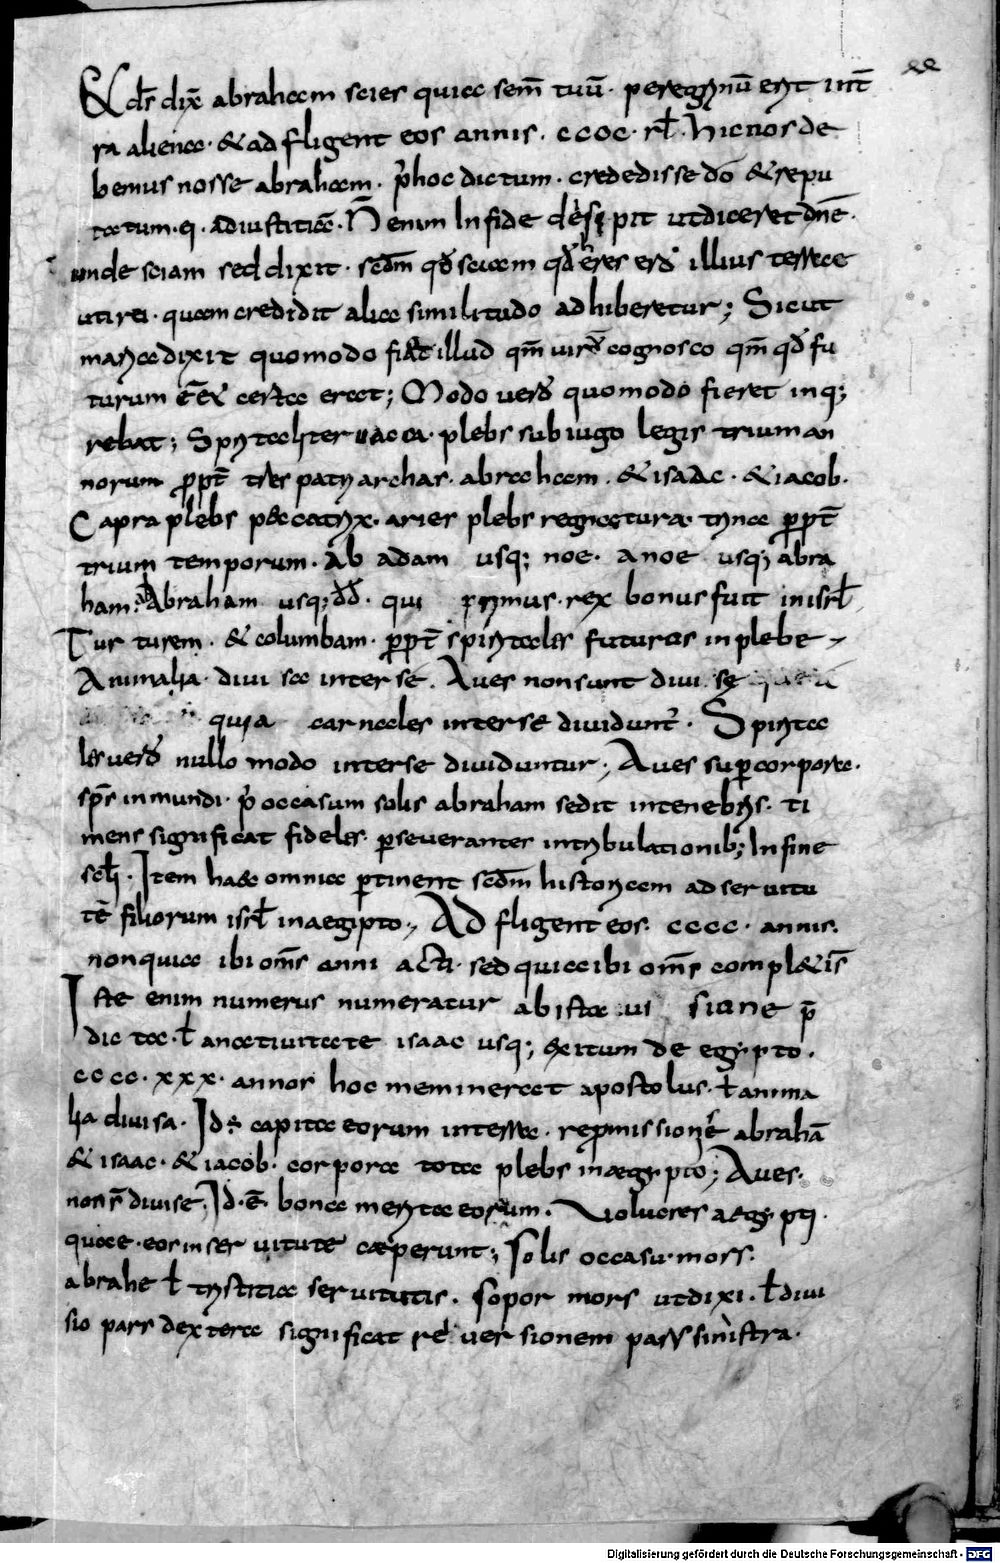 xx
& ds̄ dix̄ abraham scies quia sem̄ tuū· peregrinū erit int̄
ra aliena· & adfligent eos annis· cccc· rl̄· hic nos de
bemus nosse abraham· p̄ hoc dictum· credidisse dō & repu
tatum· ei· adiustitiā· N̄ enim In fide desepit utdiceret dn̄e·
unde sciam sed dixit· scdm̄ qđ sciam qđ heres ero illius terrae
uti rei· quam credidit alia similitudo adhiberetur; Sicut
maria dixit quomodo fiat illud qm̄ uirū cognosco qm̄ qđ fu
turum eēt certa erat; Modo uero quomodo fieret inq;
rebat; Spiritaliter uacca· plebs sub iugo legis trium an
norum propt̄ tres patriarchas· abraham· & isaac· & iacob·
Capra plebs peccatrix· aries plebs regnatura· trina propt̄
trium temporum· Ab adam usq; noe· a noe usq; abra
ham· ab Abraham usq; dđ· qui primus· rex bonus fuit inisrl̄
Turturem· & columbam· propt̄ spiritales futuras in plebe
Animalia· diuisa inter se· Aues non sunt diuise
quia carnales inter se diuidunt̄· Spirita
les uero nullo modo inter se diuiduntur; Aues super corpora·
sps̄ inmundi· p̄ occasum solis abraham sedit in tenebris· ti
mens significat fideles· perseuerantes in tribulationib; In fine
scl̄i· Item haec omnia pertinent scdm̄ historiam ad seruitu
tē filiorum isrl̄ in aegipto; Adfligent eos· cccc· annis·
non quia ibi om̄s anni acti· sed quia ibi om̄s compl&is̄
Iste enim numerus numeratur ab ista uisione p̄
dicta· l̄ a natiuitate isaac usq; exitum de egypto·
cccc· xxx· annos hoc meminerat apostolus· l̄ anima
lia diuisa· Id· ē· capita eorum interra· repromissionē abrahā
& isaac· & iacob· corpora tota plebs in aegypto; Aues·
non s̄ diuise· Id· ē· bona merita eorum· Uolucres aegypti·
quae· eos in seruitute caeperunt; Solis occasu· mors·
abrahe l̄ tristitia seruitutis· Sopor mors utdixi· l̄ diui
sio pars dextera significat reuersionem pars sinistra·